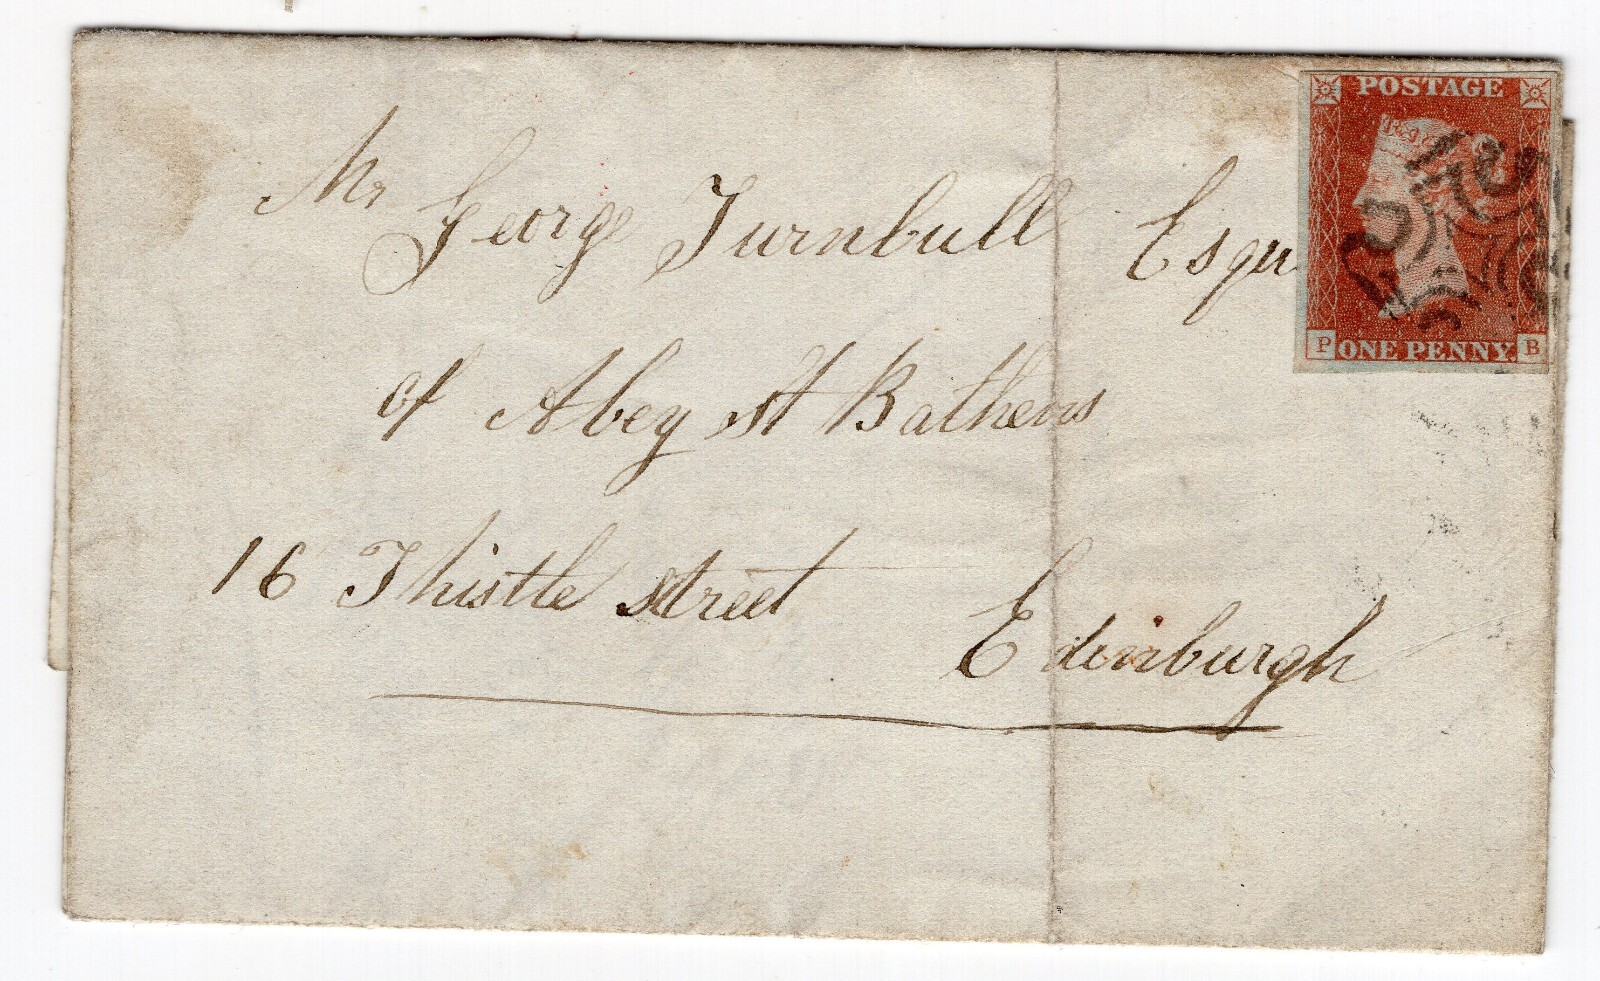 POSTAGE
Mr George Turnbull Esqu
of Abey St Bathens
16 Thistle street Edinburgh
P ONE PENNY. B